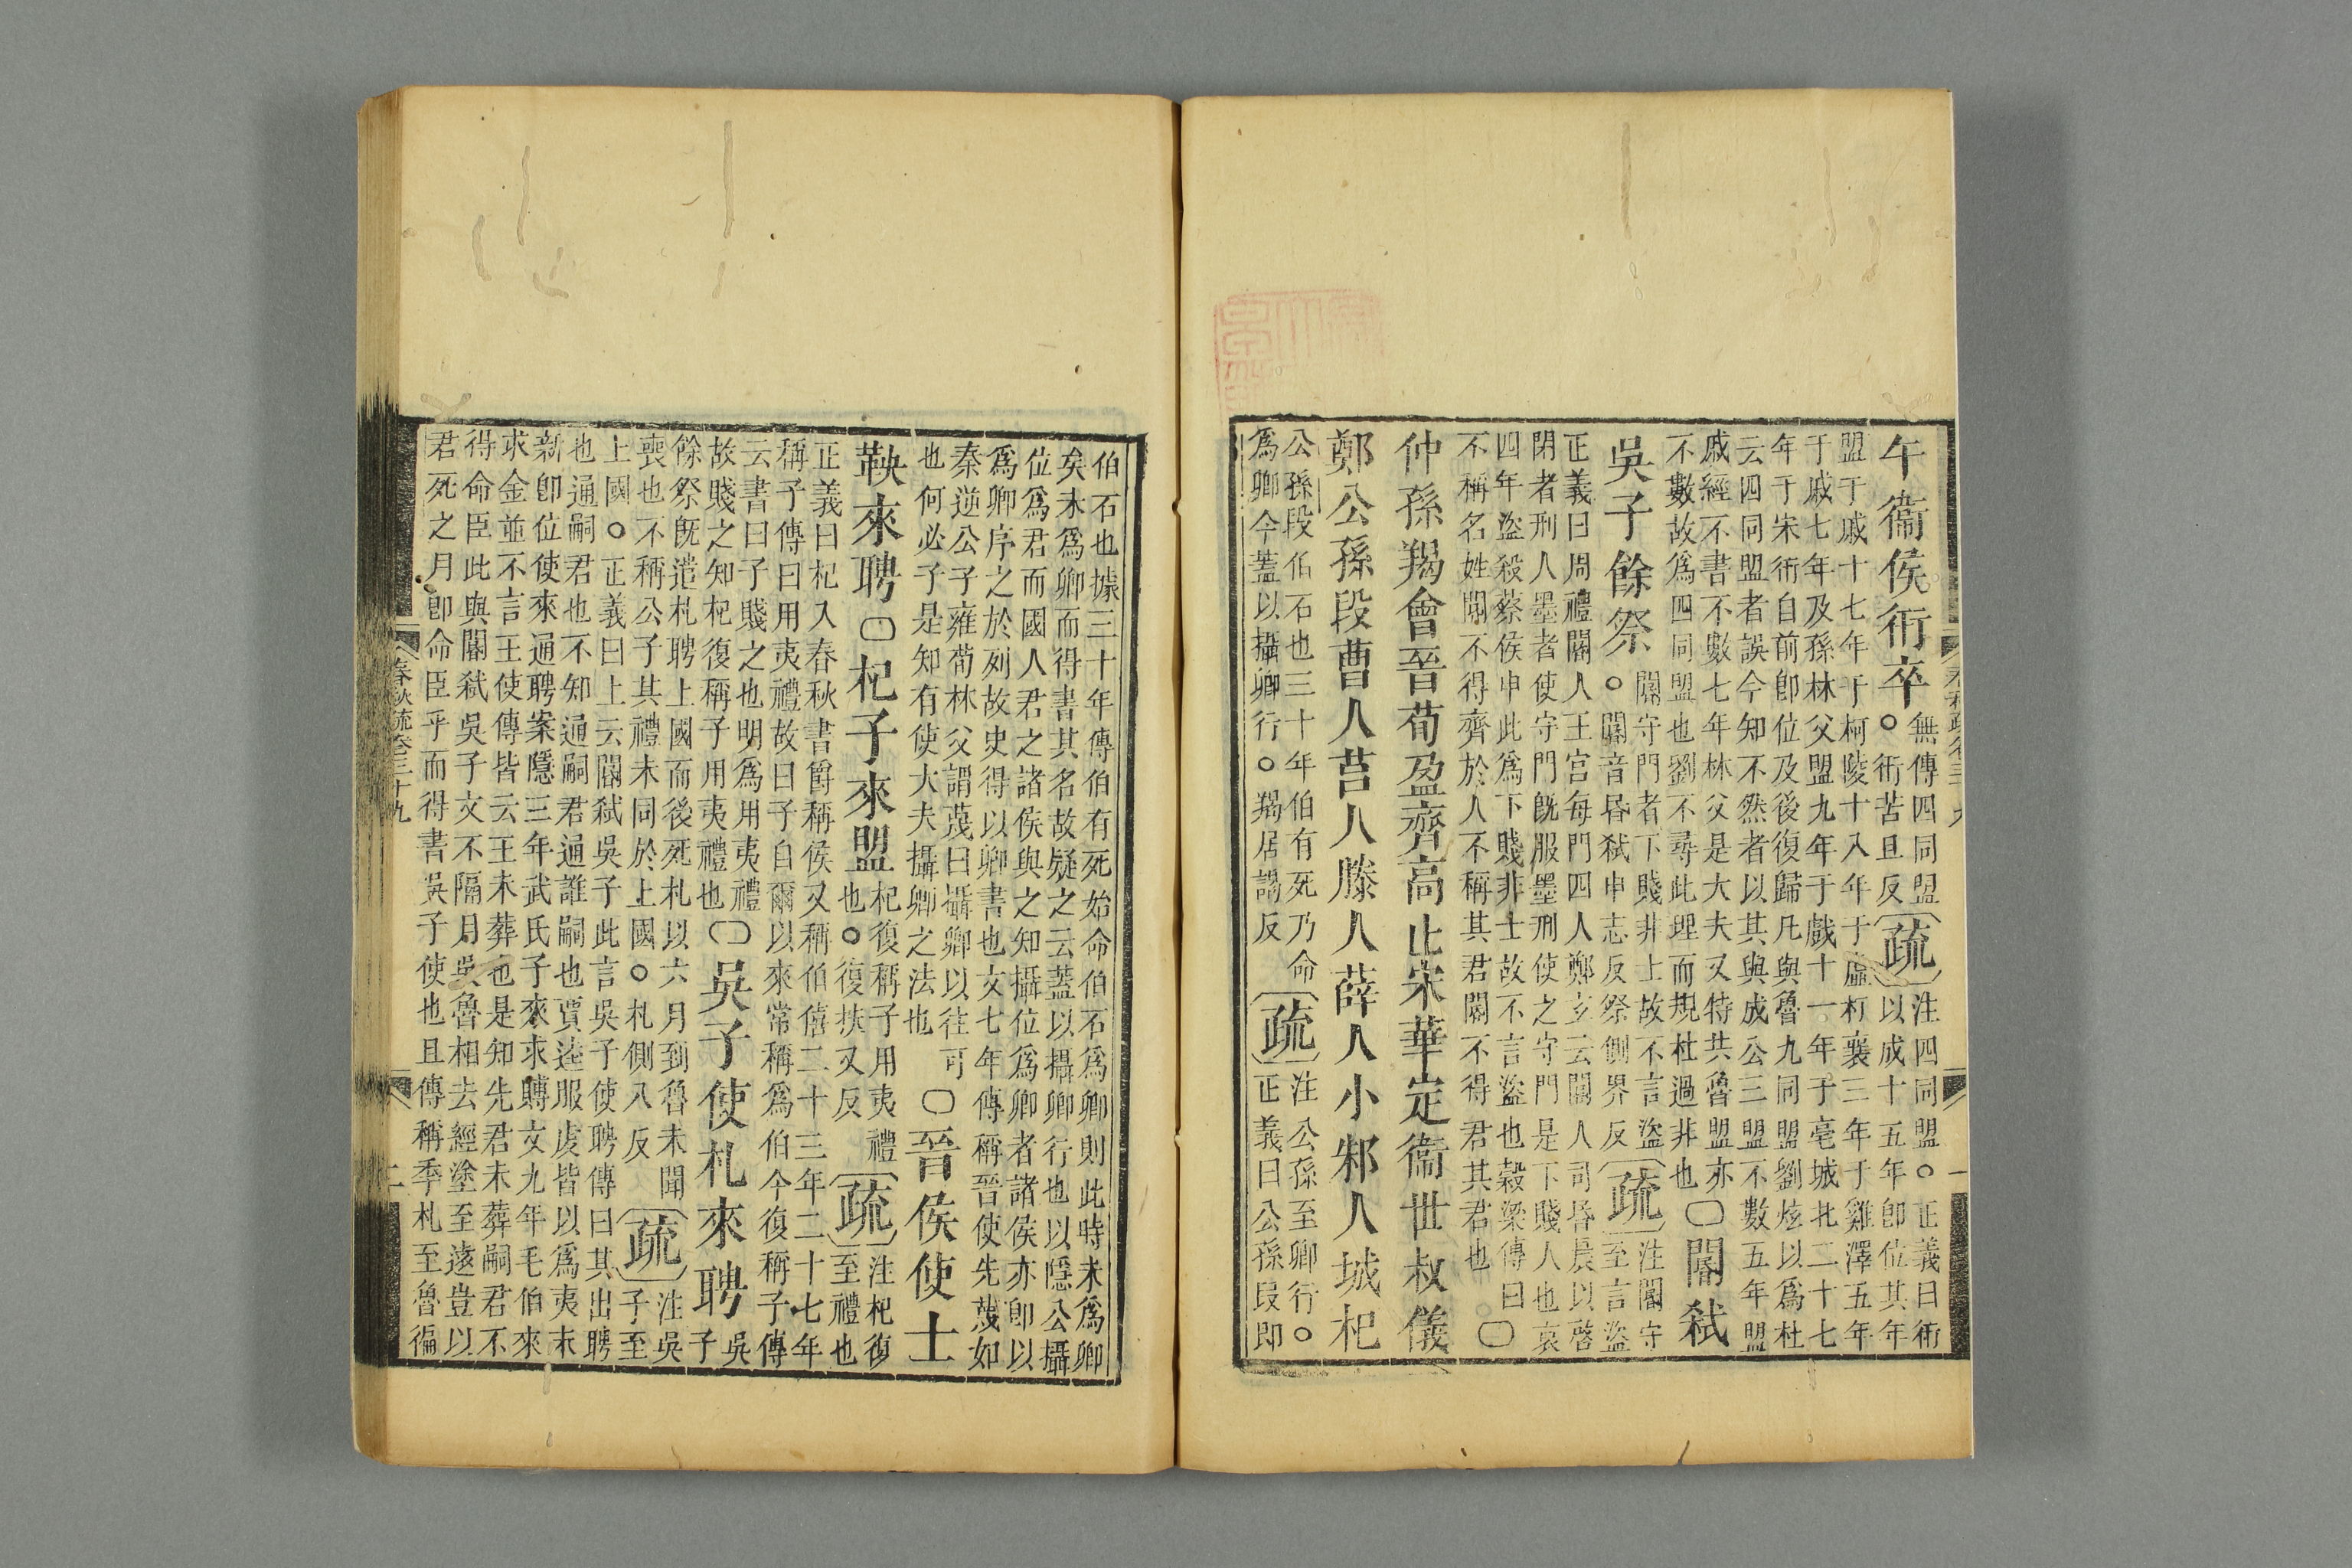 午衞侯衎卒 無傳四同盟○衎苦旦反〔疏〕注四同盟○正義曰衎以成十五年卽位其年
盟于戚十七年于柯陵十八年于虛朾襄三年于雞澤五年
于戚七年及孫林父盟九年于戲十一年于亳城北二十七
年于宋衎自前卽位及後復歸凡與魯九同盟劉炫以爲杜
云四同盟者誤今知不然者以其與成公三盟不數五年盟
戚經不書不數七年林父是大夫又特共魯盟亦
不數故爲四同盟也劉不尋此理而規杜過非也〇閽弒
吳子餘祭 閽守門者下賤非士故不言盜○閽音昏弒申志反祭側界反〔疏〕注閽守至言盜
正義曰周禮閽人王宮每門四人鄭玄云閽人司昏晨以啓
閉者刑人墨者使守門旣服墨刑使之守門是下賤人也哀
四年盜殺蔡侯申此爲下賤非士故不言盜也穀梁傳曰
不稱名姓閽不得齊於人不稱其君閽不得君其君也〇
仲孫羯會晉荀盈齊高止宋華定衞世叔儀
鄭公孫段曹人莒人滕人薛人小邾人城杞
公孫段伯石也三十年伯有死乃命爲卿今蓋以攝卿行○羯居謁反〔疏〕注公孫至卿行○正義曰公孫段即
伯石也據三十年傳伯有死始命伯石爲卿則此時未爲卿
矣未爲卿而得書其名故疑之云蓋以攝卿行也以隱公攝
位爲君而國人君之諸侯與之知攝位爲卿者諸侯亦卽以
爲卿序之於列故史得以卿書也文七年傳稱晉使先蔑如
秦逆公子雍荀林父謂蔑曰攝卿以往可
也何必子是知有使大夫攝卿之法也〇晉侯使士
鞅來聘〇杞子來盟 杞復稱子用夷禮也○復扶又反〔疏〕注杞復至禮也
正義曰杞入春秋書爵稱侯又稱伯僖二十三年二十七年
稱子傳曰用夷禮故曰子自爾以來常稱爲伯今復稱子傳
云書曰子賤之也明爲用夷禮
故賤之知杞復稱子用夷禮也〇吳子使札來聘 吳子
餘祭旣遣札聘上國而後死札以六月到魯未聞
喪也不稱公子其禮未同於上國○札側八反〔疏〕注吳子至
上國○正義曰上云閽弒吳子此言吳子使聘傳曰其出聘
也通嗣君也不知通嗣君通誰嗣也賈逵服虔皆以爲夷末
新卽位使來通聘案隱三年武氏子來求賻文九年毛伯來
求金並不言王使傳皆云王未葬也是知先君未葬嗣君不
得命臣此與閽弒吳子文不隔月吳魯相去經塗至遠豈以
君死之月卽命臣乎而得書吳子使也且傳稱季札至魯徧
春秋疏卷三十九
二